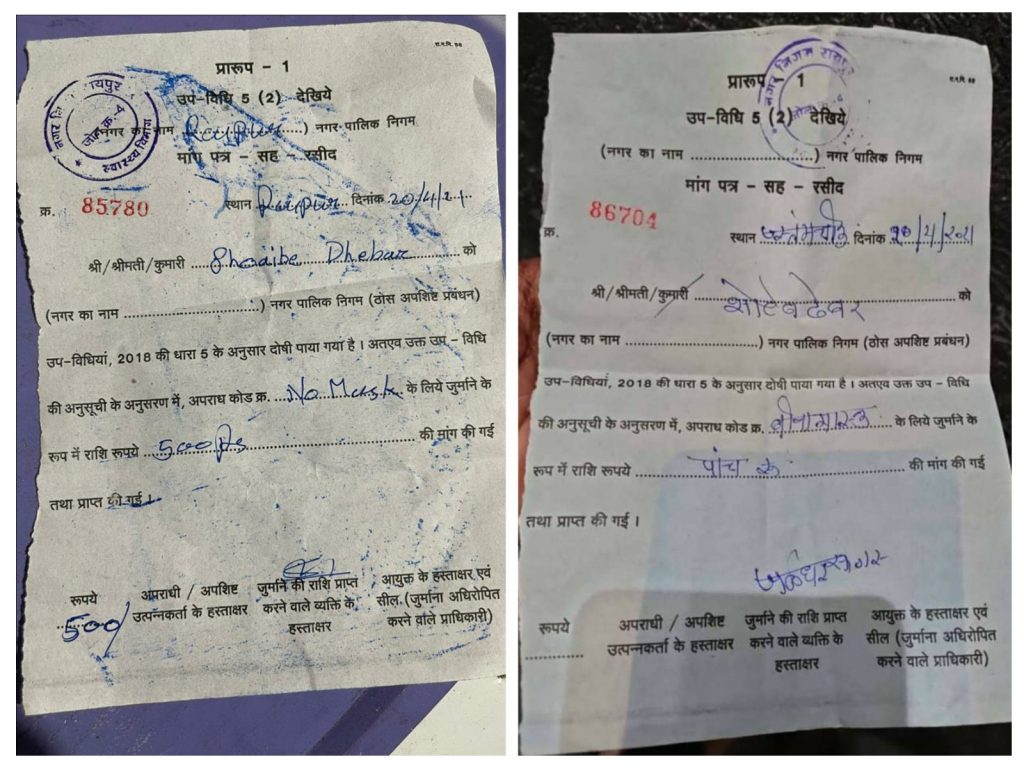 रा.न.नि. 98
प्रारूप - 1
उप-विधि 5 (2) देखिये
(नगर का नाम Raipur) नगर पालिक निगम
मांग पत्र - सह - रसीद
क्र. 85780 स्थान Raipur दिनांक 20/4/21
श्री/श्रीमती/कुमारी Shoaibe Dhebar को
(नगर का नाम ..............................) नगर पालिक निगम (ठोस अपशिष्ट प्रबंधन)
उप-विधियां, 2018 की धारा 5 के अनुसार दोषी पाया गया है । अतएव उक्त उप – विधि
की अनुसूची के अनुसरण में, अपराध कोड क्र. No Mask के लिये जुर्माने के
रूप में राशि रूपये 500 Rs की मांग की गई
तथा प्राप्त की गई ।
रूपये अपराधी / अपशिष्ट जुर्माने की राशि प्राप्त आयुक्त के हस्ताक्षर एवं
500/ उत्पन्नकर्ता के हस्ताक्षर करने वाले व्यक्ति के सील (जुर्माना अधिरोपित
हस्ताक्षर करने वाले प्राधिकारी)
नगर निगम रायपुर
जोन क्र.-4
स्वास्थ्य विभाग
प्रारूप 1
उप-विधि 5 (2) देखिये
(नगर का नाम ..............................) नगर पालिक निगम
मांग पत्र - सह - रसीद
क्र. 86704 स्थान दिनांक 20/4/2021
श्री/श्रीमती/कुमारी शोएब ढेबर को
(नगर का नाम ..............................) नगर पालिक निगम (ठोस अपशिष्ट प्रबंधन)
उप-विधियां, 2018 की धारा 5 के अनुसार दोषी पाया गया है । अतएव उक्त उप – विधि
की अनुसूची के अनुसरण में, अपराध कोड क्र. के लिये जुर्माने के
रूप में राशि रूपये पांच की मांग की गई
तथा प्राप्त की गई ।
रूपये अपराधी / अपशिष्ट जुर्माने की राशि प्राप्त आयुक्त के हस्ताक्षर एवं
.............. उत्पन्नकर्ता के हस्ताक्षर करने वाले व्यक्ति के सील (जुर्माना अधिरोपित
हस्ताक्षर करने वाले प्राधिकारी)